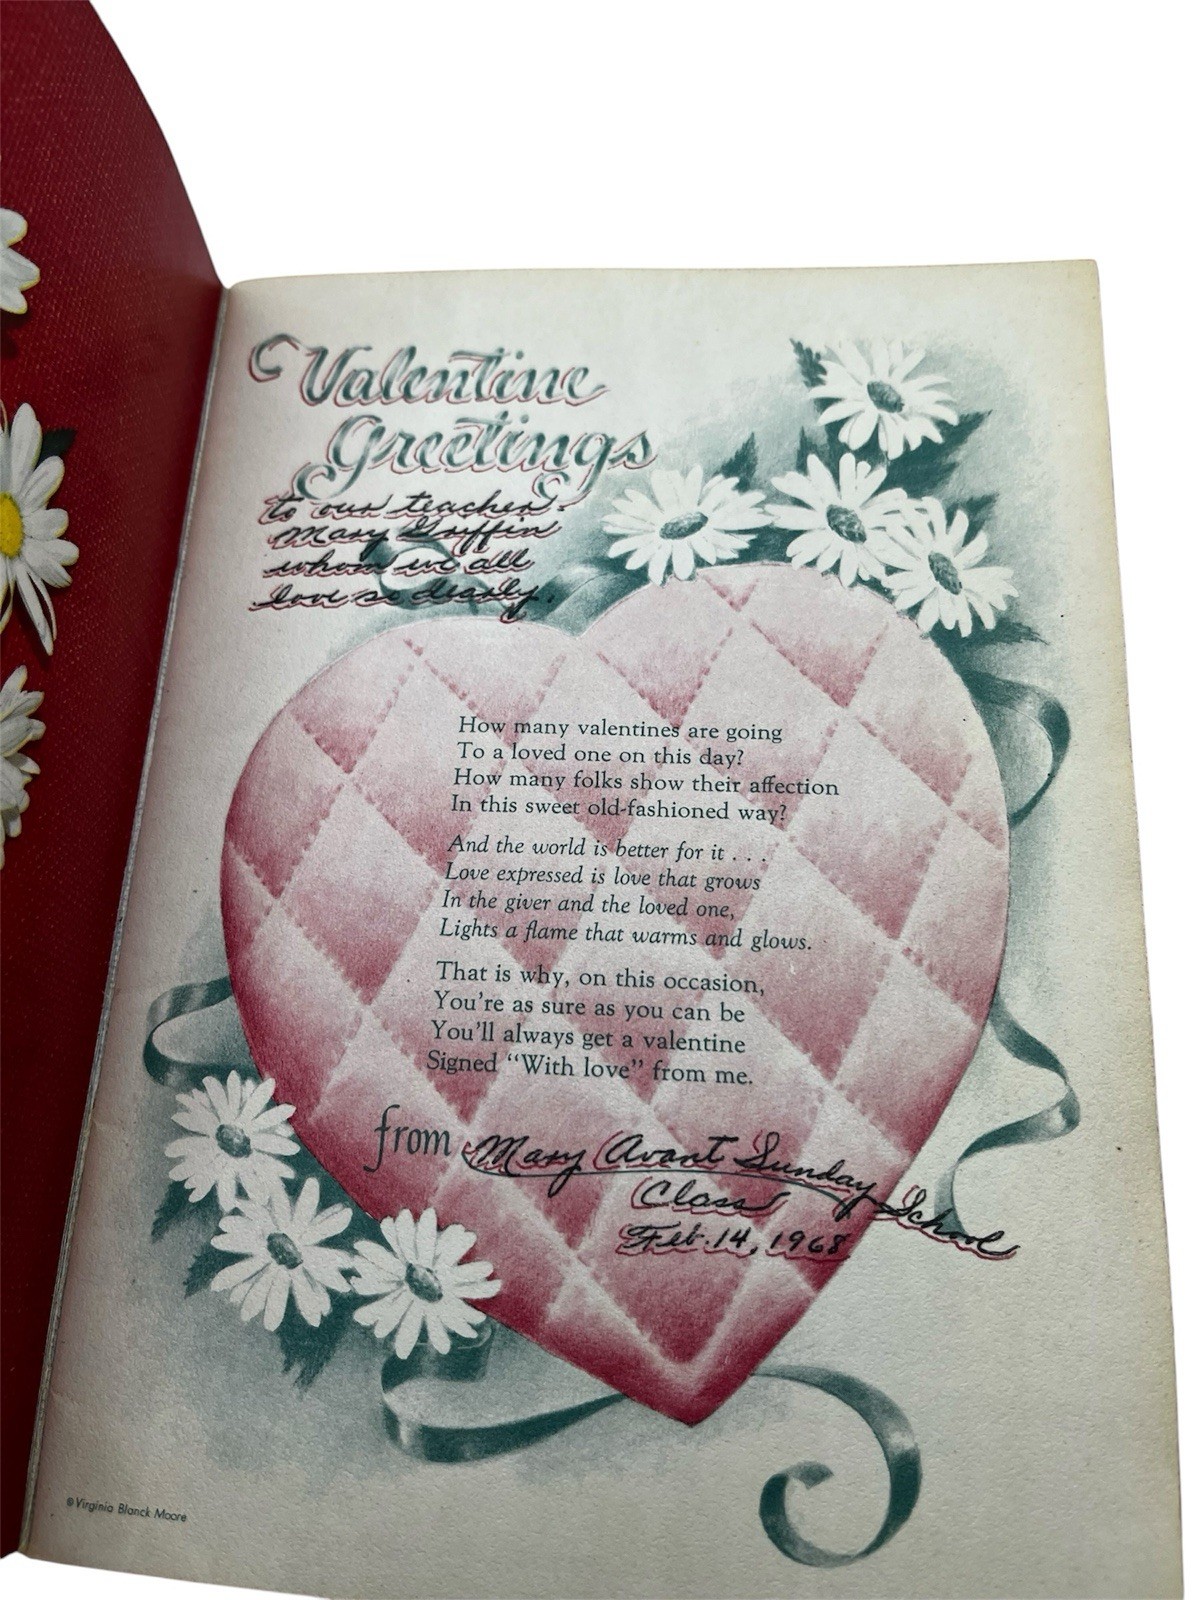 Valentine
Greetings
to our teacher
Mary Griffin
whom we all
love so dearly.
How many valentines are going
To a loved one on this day?
How many folks show their affection
In this sweet old-fashioned way?
And the world is better for it . . .
Love expressed is love that grows
In the giver and the loved one,
Lights a flame that warms and glows.
That is why, on this occasion,
You're as sure as you can be
You'll always get a valentine
Signed “With love” from me.
from Mary Avant Sunday School
Class
Feb. 14, 1968
© Virginia Blanck Moore